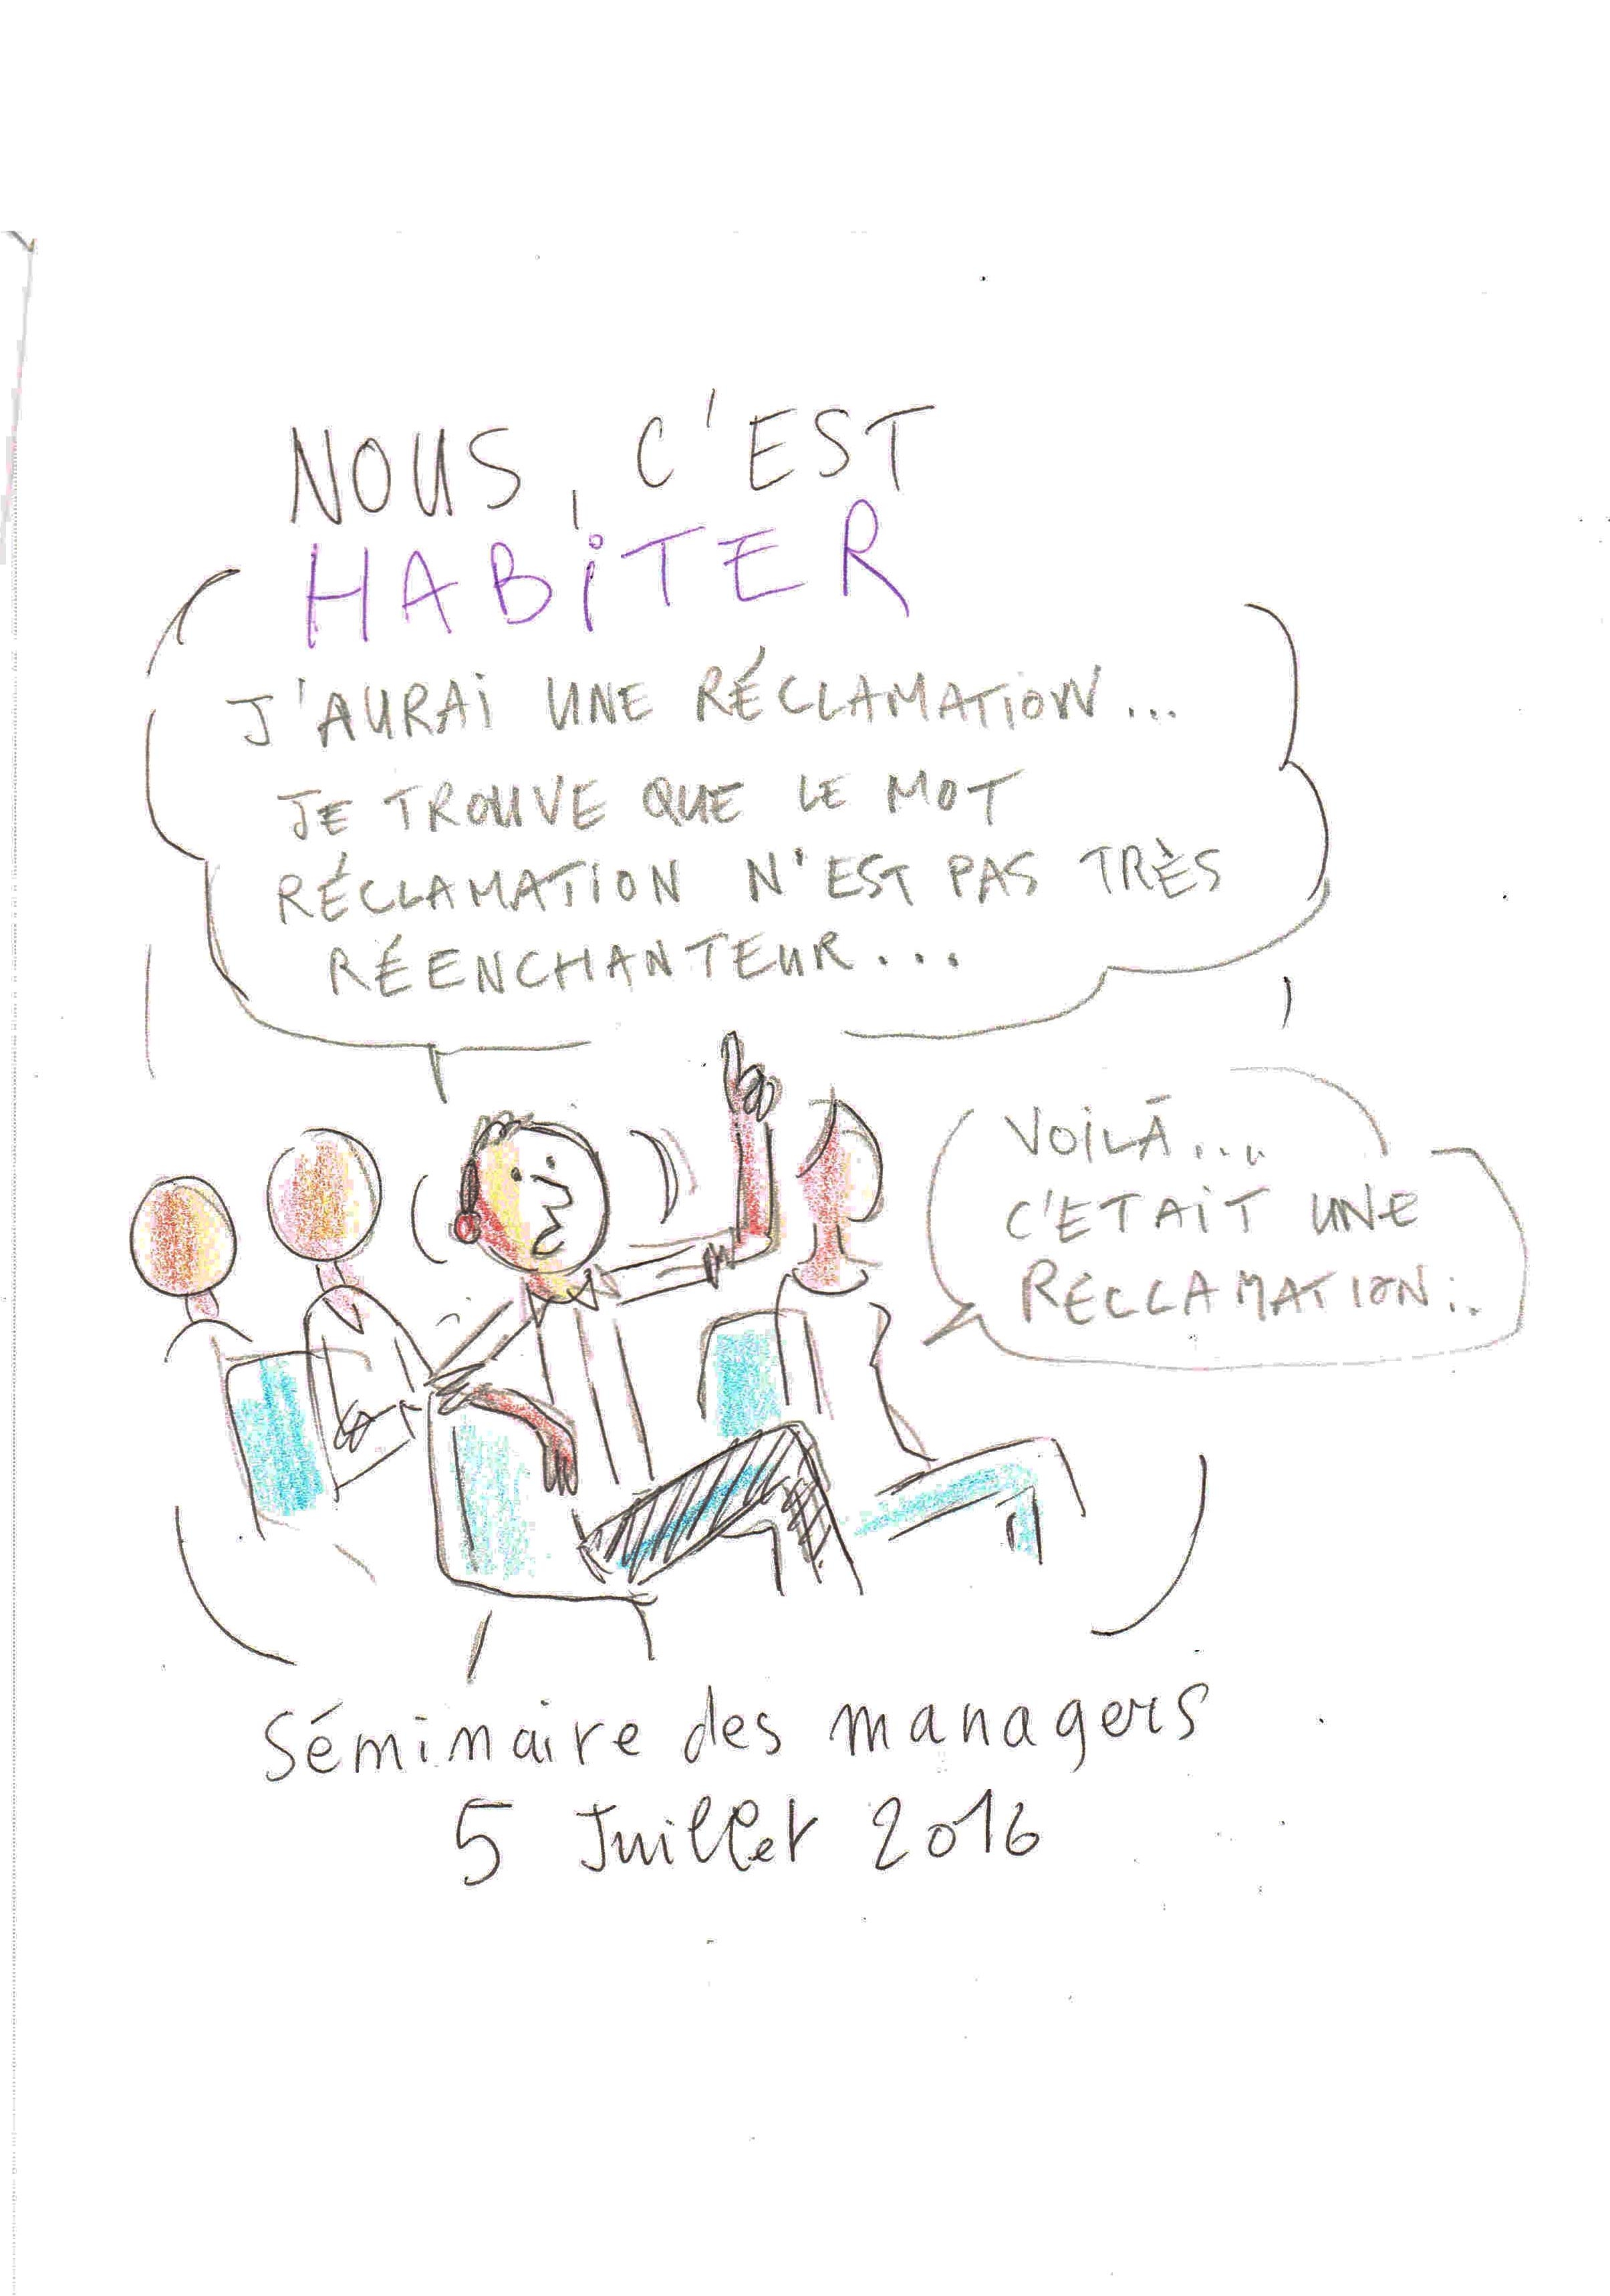 NOUS, C'EST
HABiTER
J'AURAi UNE RÉCLAMATiON...
JE TROUVE QUE LE MOT
RÉCLAMATION N'EST PAS TRÈS
RÉENCHANTEUR...
VOiLÀ...
C'ETAiT UNE
RECLAMATION..
Séminaire des managers
5 Juillet 2016